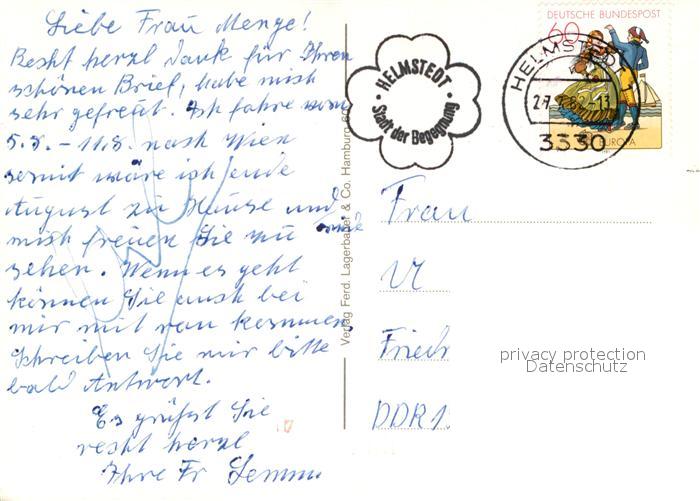 Liebe Frau Menge!
Recht herzl Dank für Ihren
schönen Brief, habe mich
sehr gefreut. Ich fahre vom
5.8. – 11.8. nach Wien
somit wäre ich ende
August zu Hause und
mich freuen Sie zu
sehen. Wenn es geht
können Sie auch bei
mir mit kommen
Schreiben Sie mir bitte
bald Antwort.
Es grüßt Sie
recht herzl
Ihre Fr
Verlag Ferd. Lagerbauer & Co. Hamburg
HELMSTEDT
Stadt der Begegnung
DEUTSCHE BUNDESPOST
60
EUROPA
HELMSTEDT
82-13
3330
Frau
Friedr
DDR 1
privacy protection
Datenschutz